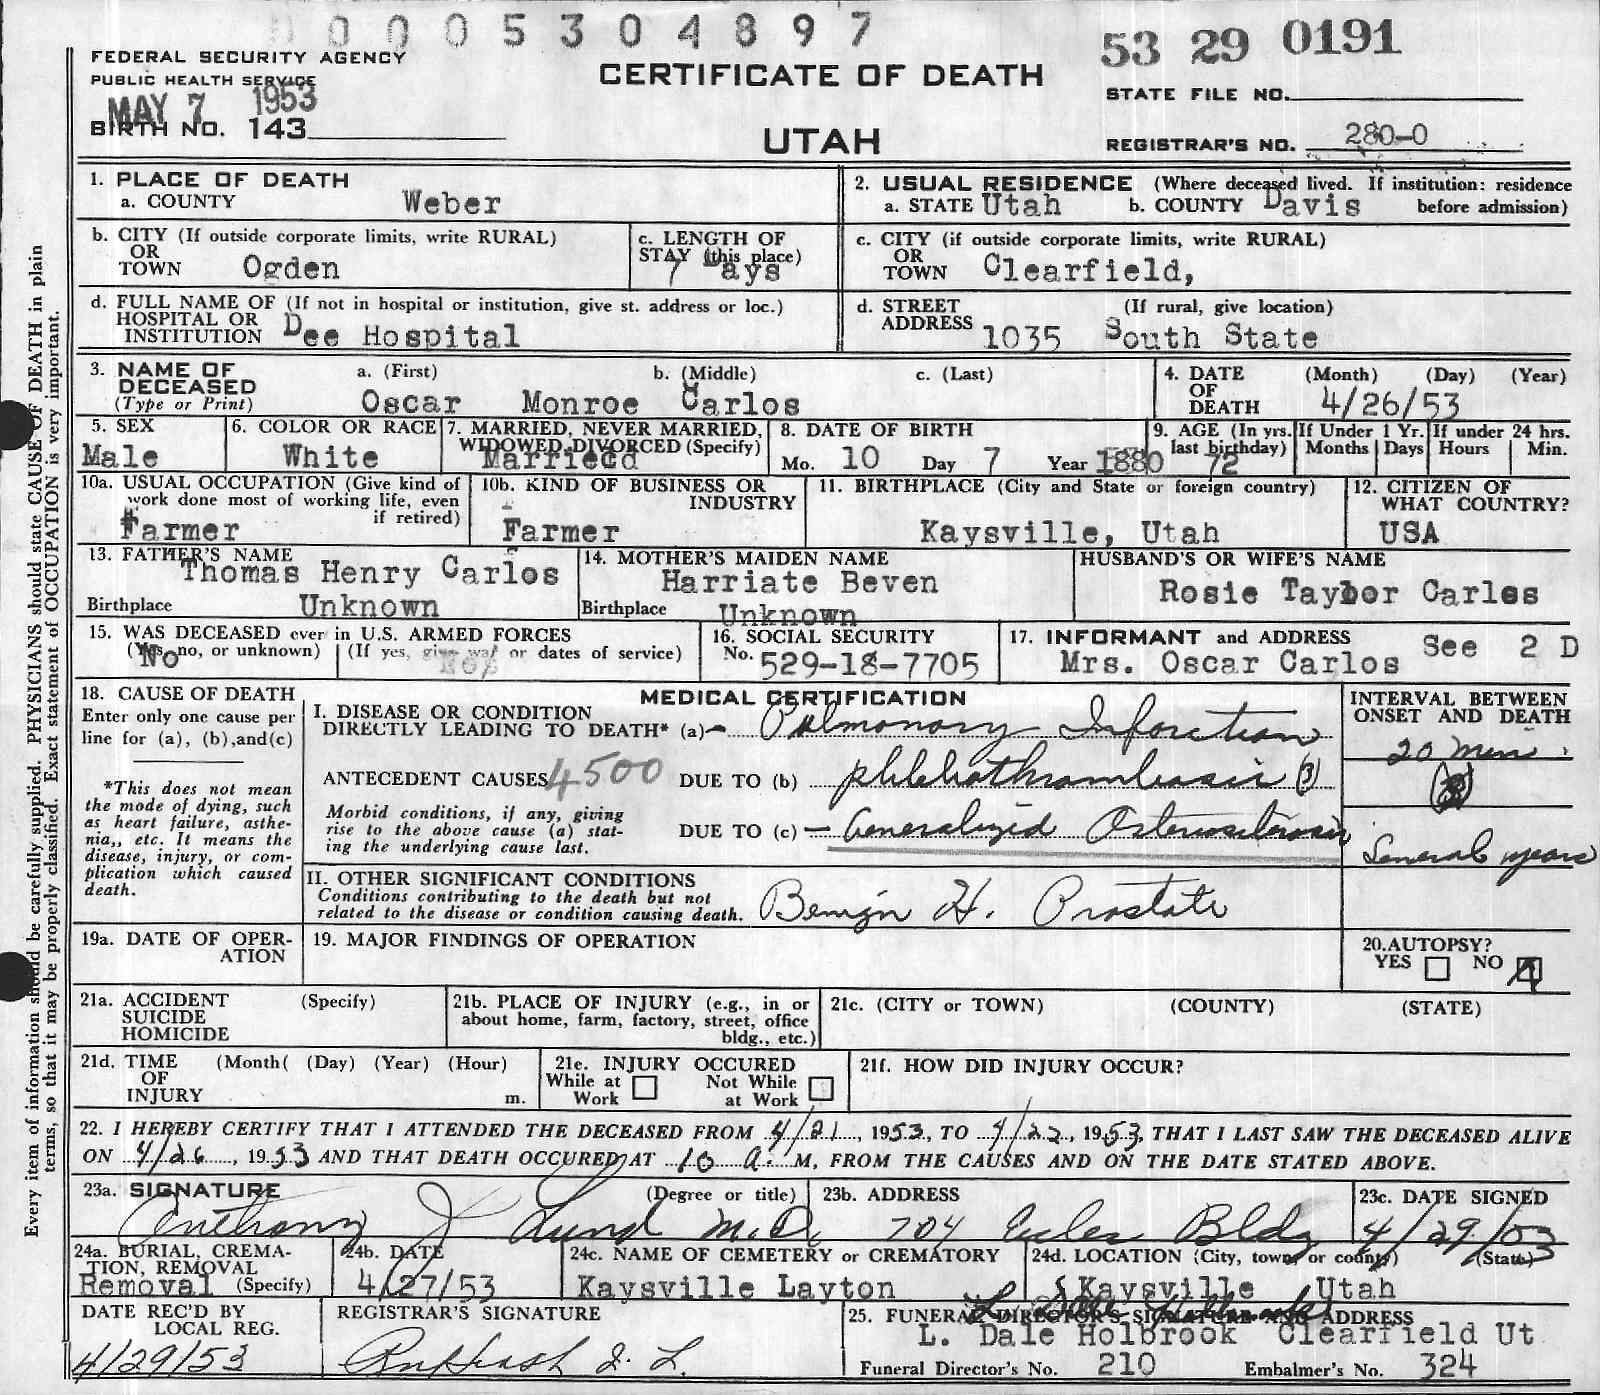 0005304897
53 29 0191
FEDERAL SECURITY AGENCY
PUBLIC HEALTH SERVICE
MAY 7 1953
BIRTH NO. 143
CERTIFICATE OF DEATH
UTAH
STATE FILE NO.
REGISTRAR'S NO. 280-0
Every item of information should be carefully supplied. PHYSICIANS should state CAUSE OF DEATH in plain
terms, so that it may be properly classified. Exact statement of OCCUPATION is very important.
1. PLACE OF DEATH
a. COUNTY Weber
2. USUAL RESIDENCE (Where deceased lived. If institution: residence
a. STATE Utah b. COUNTY Davis before admission)
b. CITY (If outside corporate limits, write RURAL)
OR
TOWN Ogden
c. LENGTH OF
STAY (this place)
7 Days
c. CITY (if outside corporate limits, write RURAL)
OR
TOWN Clearfield,
d. FULL NAME OF (If not in hospital or institution, give st. address or loc.)
HOSPITAL OR
INSTITUTION Dee Hospital
d. STREET (If rural, give location)
ADDRESS 1035 South State
3. NAME OF a. (First) b. (Middle) c. (Last)
DECEASED
(Type or Print) Oscar Monroe Carlos
4. DATE (Month) (Day) (Year)
OF
DEATH 4/26/53
5. SEX
Male
6. COLOR OR RACE
White
7. MARRIED, NEVER MARRIED,
WIDOWED, DIVORCED (Specify)
Marriecd
8. DATE OF BIRTH
Mo. 10 Day 7 Year 1880
9. AGE (In yrs.
last birthday)
72
If Under 1 Yr.
Months Days
If under 24 hrs.
Hours Min.
10a. USUAL OCCUPATION (Give kind of
work done most of working life, even
if retired)
Farmer
10b. KIND OF BUSINESS OR
INDUSTRY
Farmer
11. BIRTHPLACE (City and State or foreign country)
Kaysville, Utah
12. CITIZEN OF
WHAT COUNTRY?
USA
13. FATHER'S NAME
Thomas Henry Carlos
Birthplace Unknown
14. MOTHER'S MAIDEN NAME
Harriate Beven
Birthplace Unknown
HUSBAND'S OR WIFE'S NAME
Rosie Taylor Carlos
15. WAS DECEASED ever in U.S. ARMED FORCES
(Yes, no, or unknown) (If yes, give war or dates of service)
No
16. SOCIAL SECURITY
No. 529-18-7705
17. INFORMANT and ADDRESS See 2 D
Mrs. Oscar Carlos
18. CAUSE OF DEATH
Enter only one cause per
line for (a), (b),and(c)
*This does not mean
the mode of dying, such
as heart failure, asthe-
nia,, etc. It means the
disease, injury, or com-
plication which caused
death.
MEDICAL CERTIFICATION
I. DISEASE OR CONDITION
DIRECTLY LEADING TO DEATH* (a) Pulmonary Infarction
ANTECEDENT CAUSES 4500 DUE TO (b) phlebothrombosis (3)
Morbid conditions, if any, giving
rise to the above cause (a) stat-
ing the underlying cause last.
DUE TO (c) Generalized Osteriosclerosis
INTERVAL BETWEEN
ONSET AND DEATH
20 Min.
(3)
Several years
II. OTHER SIGNIFICANT CONDITIONS
Conditions contributing to the death but not
related to the disease or condition causing death. Benign H. Prostate
19a. DATE OF OPER-
ATION
19. MAJOR FINDINGS OF OPERATION
20.AUTOPSY?
YES NO
21a. ACCIDENT (Specify)
SUICIDE
HOMICIDE
21b. PLACE OF INJURY (e.g., in or
about home, farm, factory, street, office
bldg., etc.)
21c. (CITY or TOWN) (COUNTY) (STATE)
21d. TIME (Month( (Day) (Year) (Hour)
OF
INJURY m.
21e. INJURY OCCURED
While at Not While
Work at Work
21f. HOW DID INJURY OCCUR?
22. I HEREBY CERTIFY THAT I ATTENDED THE DECEASED FROM 4/21, 1953, TO 4/22, 1953, THAT I LAST SAW THE DECEASED ALIVE
ON 4/26, 1953 AND THAT DEATH OCCURED AT 10 a. M, FROM THE CAUSES AND ON THE DATE STATED ABOVE.
23a. SIGNATURE (Degree or title)
Anthony J Lund M.D.
23b. ADDRESS
704 Eccles Bldg
23c. DATE SIGNED
4/29/53
24a. BURIAL, CREMA-
TION, REMOVAL
Removal (Specify)
24b. DATE
4/27/53
24c. NAME OF CEMETERY or CREMATORY
Kaysville Layton
24d. LOCATION (City, town, or county) (State)
Kaysville Utah
DATE REC'D BY
LOCAL REG.
4/29/53
REGISTRAR'S SIGNATURE
25. FUNERAL DIRECTOR'S SIGNATURE AND ADDRESS
L. Dale Holbrook
L. Dale Holbrook Clearfield Ut
Funeral Director's No. 210 Embalmer's No. 324